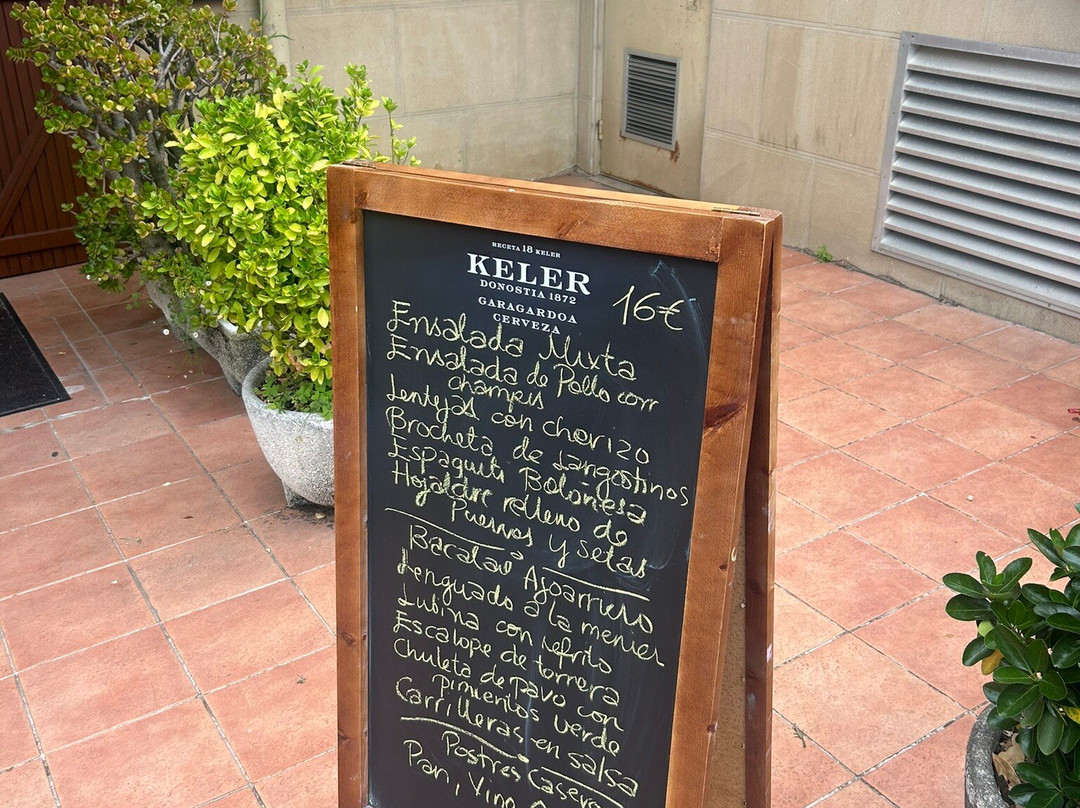 RECETA 18 KELER
KELER
DONOSTIA 1872
GARAGARDOA
CERVEZA
16€
Ensalada Mixta
Ensalada de Pollo con
champis
Lentejas con chorizo
Brocheta de Langostinos
Espaguiti Boloñesa
Hojaldre relleno de
Puerros y setas
Bacalao Ajoarriero
Lenguado a la menier
Lubina con refrito
Escalope de ternera
Chuleta de pavo con
pimientos verde
Carrilleras en salsa
Postres Casero
Pan, Vino